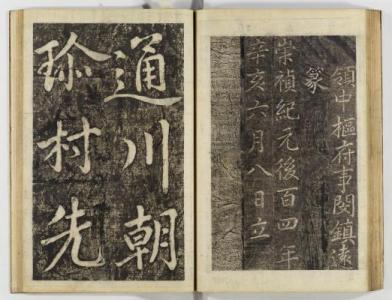 領中樞府事閔鎮遠
篆
崇禎紀元後百四年
辛亥六月八日立
通川朝
珎村先